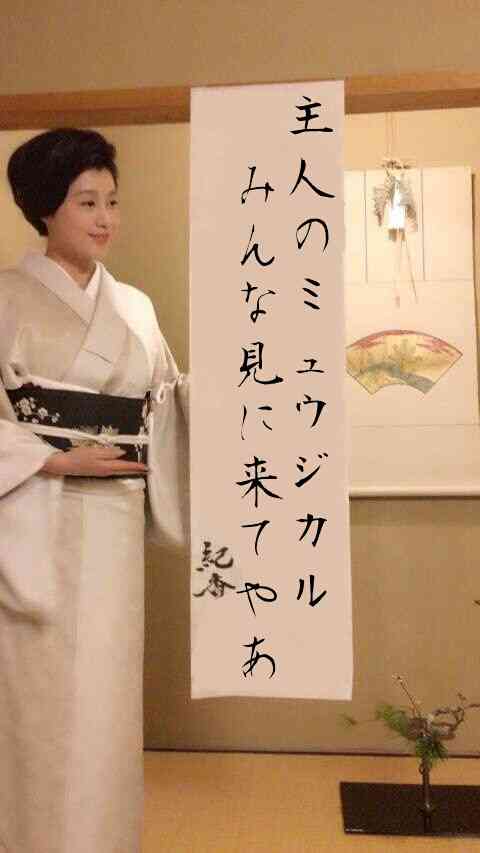 主人のミュウジカル
みんな見に来てやあ
紀香